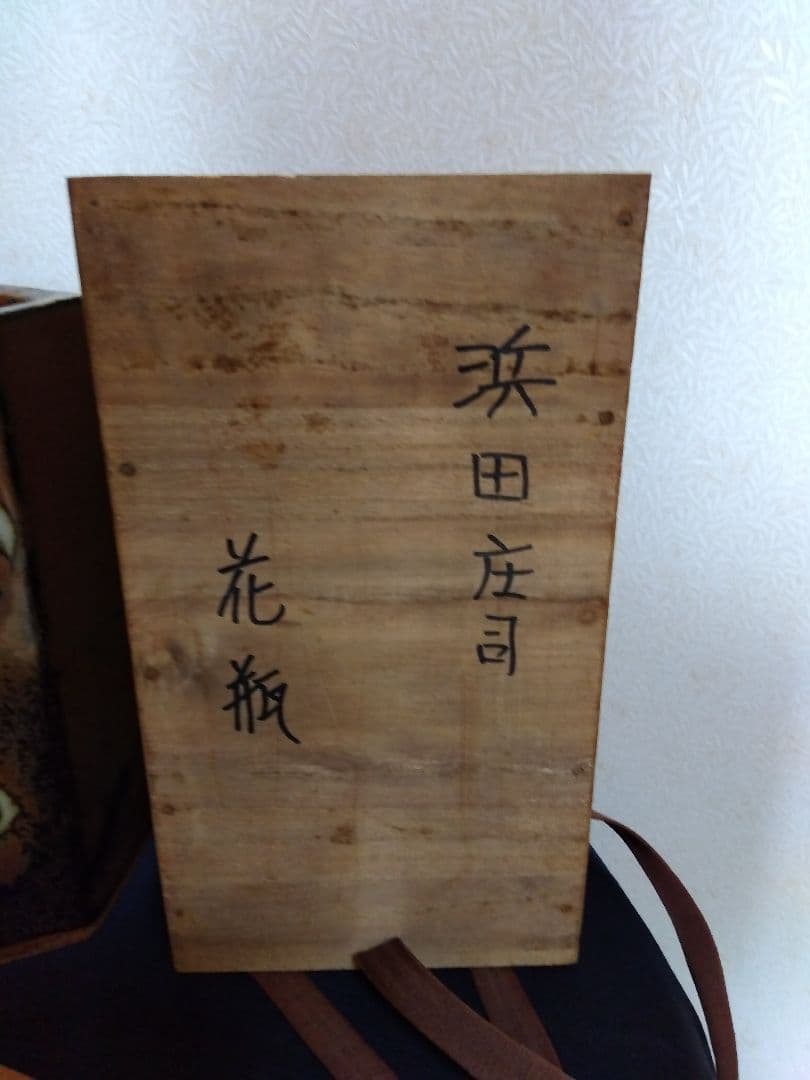 浜田庄司
花瓶